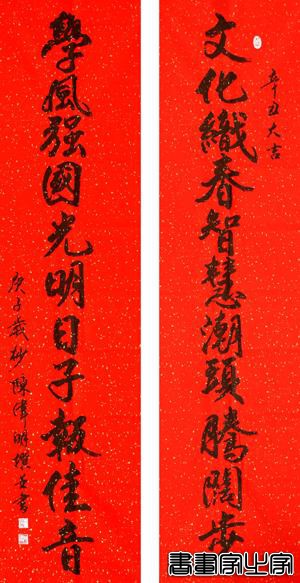 辛丑大吉
文化織春智慧潮頭騰闊步
學風强國光明日子報佳音
庚子歲杪陳偉明撰並書
書畫家必字